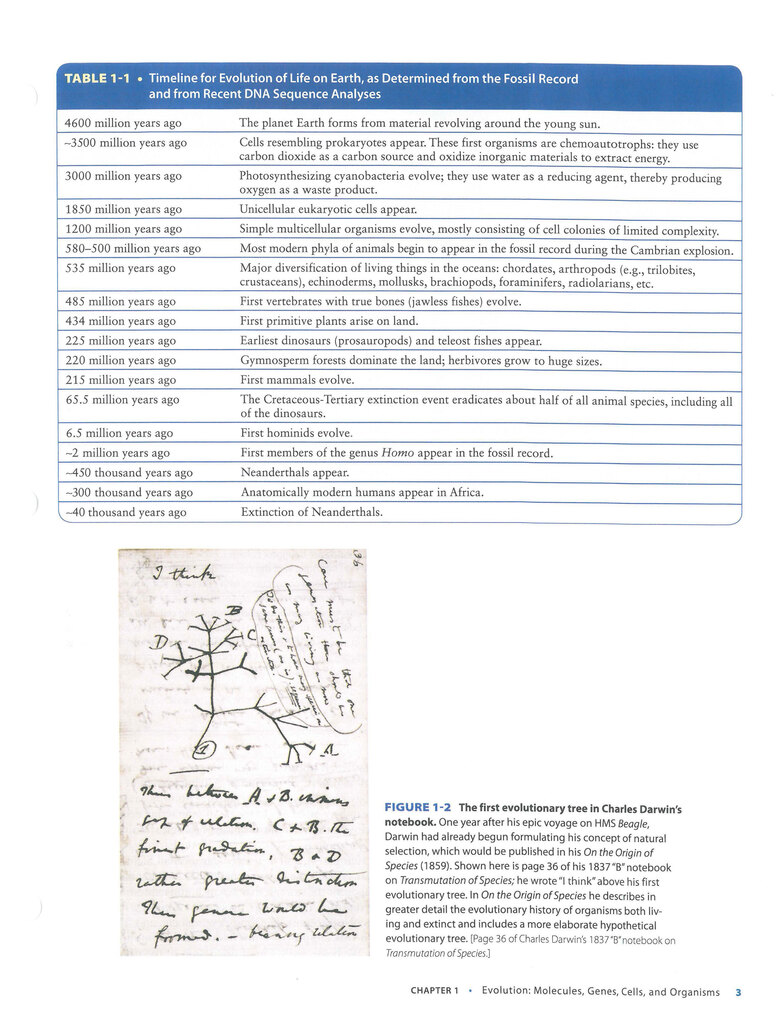 TABLE 1-1 • Timeline for Evolution of Life on Earth, as Determined from the Fossil Record
and from Recent DNA Sequence Analyses
4600 million years ago The planet Earth forms from material revolving around the young sun.
~3500 million years ago Cells resembling prokaryotes appear. These first organisms are chemoautotrophs: they use
carbon dioxide as a carbon source and oxidize inorganic materials to extract energy.
3000 million years ago Photosynthesizing cyanobacteria evolve; they use water as a reducing agent, thereby producing
oxygen as a waste product.
1850 million years ago Unicellular eukaryotic cells appear.
1200 million years ago Simple multicellular organisms evolve, mostly consisting of cell colonies of limited complexity.
580–500 million years ago Most modern phyla of animals begin to appear in the fossil record during the Cambrian explosion.
535 million years ago Major diversification of living things in the oceans: chordates, arthropods (e.g., trilobites,
crustaceans), echinoderms, mollusks, brachiopods, foraminifers, radiolarians, etc.
485 million years ago First vertebrates with true bones (jawless fishes) evolve.
434 million years ago First primitive plants arise on land.
225 million years ago Earliest dinosaurs (prosauropods) and teleost fishes appear.
220 million years ago Gymnosperm forests dominate the land; herbivores grow to huge sizes.
215 million years ago First mammals evolve.
65.5 million years ago The Cretaceous-Tertiary extinction event eradicates about half of all animal species, including all
of the dinosaurs.
6.5 million years ago First hominids evolve.
~2 million years ago First members of the genus Homo appear in the fossil record.
~450 thousand years ago Neanderthals appear.
~300 thousand years ago Anatomically modern humans appear in Africa.
~40 thousand years ago Extinction of Neanderthals.
36
I think
Case must be that one
generation then should be
as many living as now
B
C
D
A
1
Thus between A & B. immense
gap of relation. C & B. the
finest gradation, B & D
rather greater distinction
Thus genera would be
formed. — bearing relation
FIGURE 1-2 The first evolutionary tree in Charles Darwin's
notebook. One year after his epic voyage on HMS Beagle,
Darwin had already begun formulating his concept of natural
selection, which would be published in his On the Origin of
Species (1859). Shown here is page 36 of his 1837 "B" notebook
on Transmutation of Species; he wrote "I think" above his first
evolutionary tree. In On the Origin of Species he describes in
greater detail the evolutionary history of organisms both liv-
ing and extinct and includes a more elaborate hypothetical
evolutionary tree. [Page 36 of Charles Darwin's 1837 "B" notebook on
Transmutation of Species.]
CHAPTER 1 • Evolution: Molecules, Genes, Cells, and Organisms 3